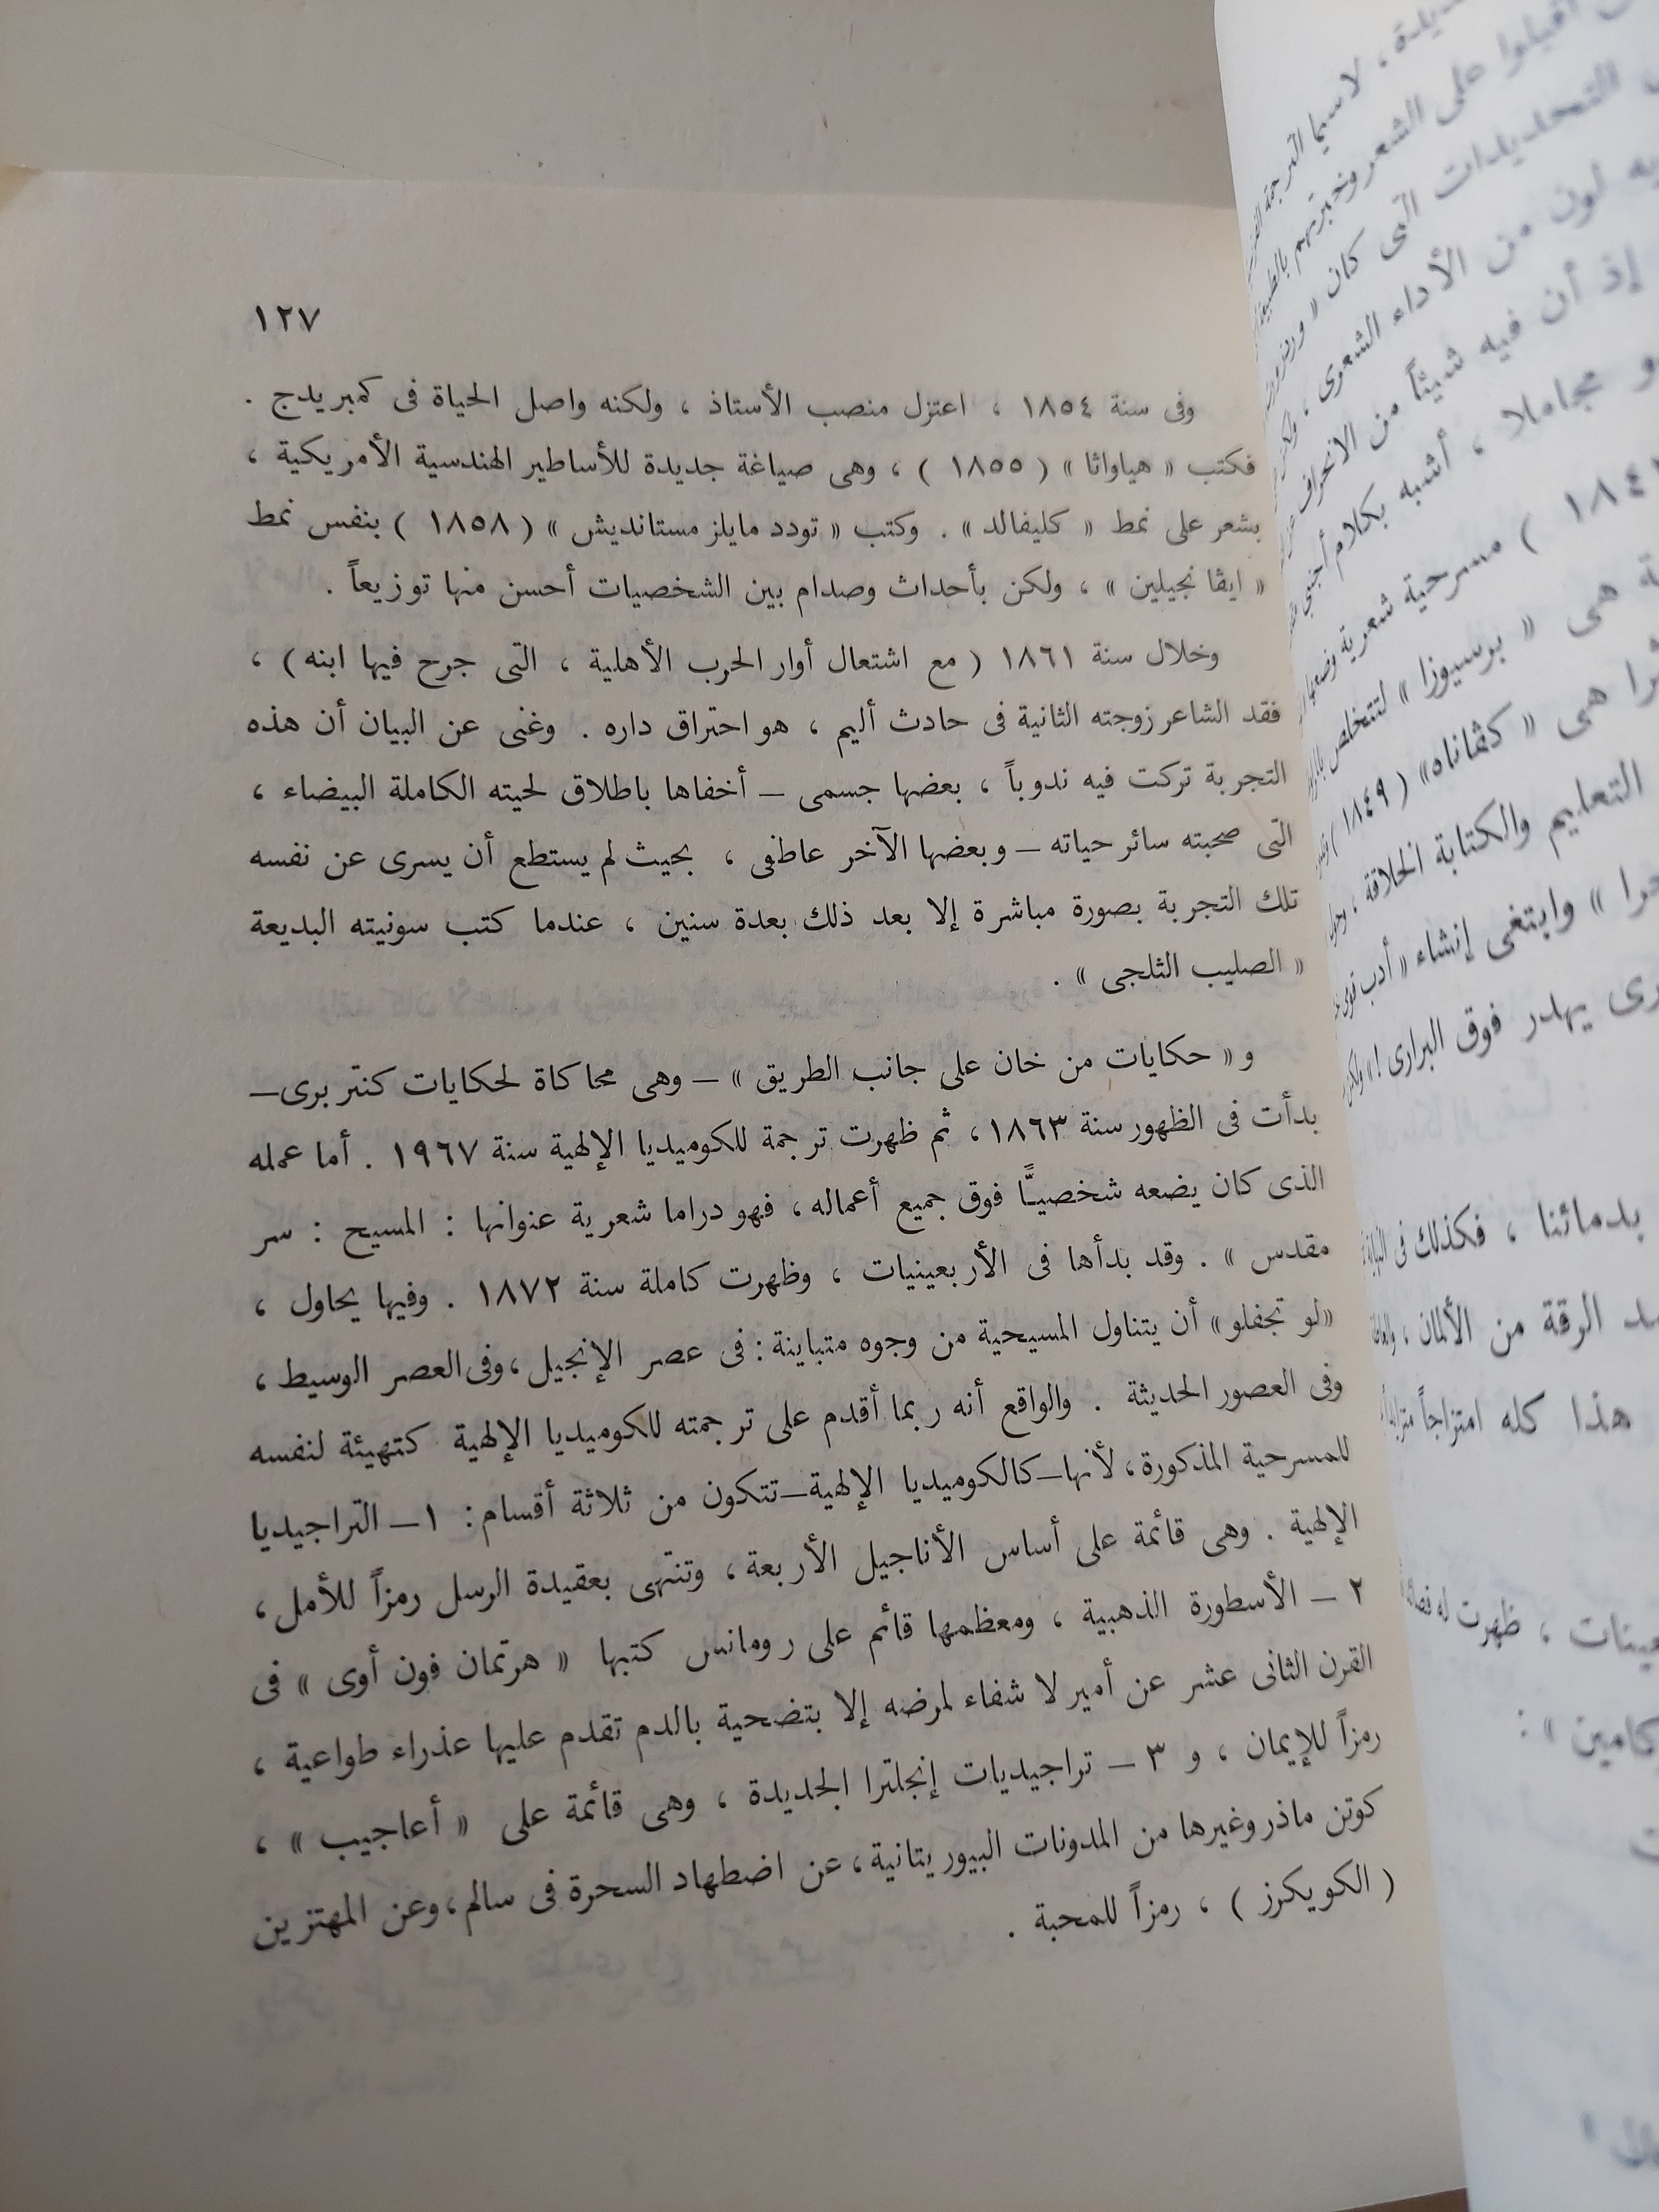 ١٢٧
وفى سنة ١٨٥٤ ، اعتزل منصب الأستاذ ، ولكنه واصل الحياة فى كمبريدج .
فكتب « هياواثا » ( ١٨٥٥ ) ، وهى صياغة جديدة للأساطير الهندسية الأمريكية ،
بشعر على نمط « كليفالد » . وكتب « تودد مايلز مستانديش » ( ١٨٥٨ ) بنفس نمط
« ايڤانجيلين » ، ولكن بأحداث وصدام بين الشخصيات أحسن منها توزيعاً .
وخلال سنة ١٨٦١ ( مع اشتعال أوار الحرب الأهلية ، التى جرح فيها ابنه ) ،
فقد الشاعر زوجته الثانية فى حادث أليم ، هو احتراق داره . وغنى عن البيان أن هذه
التجربة تركت فيه ندوباً ، بعضها جسمى – أخفاها باطلاق لحيته الكاملة البيضاء ،
التى صحبته سائر حياته – وبعضها الآخر عاطفى ، بحيث لم يستطع أن يسرى عن نفسه
تلك التجربة بصورة مباشرة إلا بعد ذلك بعدة سنين ، عندما كتب سونيته البديعة
« الصليب الثلجى » .
و « حكايات من خان على جانب الطريق » – وهى محاكاة لحكايات كنتربرى –
بدأت فى الظهور سنة ١٨٦٣ ، ثم ظهرت ترجمة للكوميديا الإلهية سنة ١٩٦٧ . أما عمله
الذى كان يضعه شخصيًّا فوق جميع أعماله ، فهو دراما شعرية عنوانها : المسيح : سر
مقدس » . وقد بدأها فى الأربعينيات ، وظهرت كاملة سنة ١٨٧٢ . وفيها يحاول ،
«لو نجفلو» أن يتناول المسيحية من وجوه متباينة : فى عصر الإنجيل ، وفى العصر الوسيط ،
وفى العصور الحديثة . والواقع أنه ربما أقدم على ترجمته للكوميديا الإلهية كتهيئة لنفسه
للمسرحية المذكورة ، لأنها – كالكوميديا الإلهية – تتكون من ثلاثة أقسام : ١ – التراجيديا
الإلهية . وهى قائمة على أساس الأناجيل الأربعة ، وتنتهى بعقيدة الرسل رمزاً للأمل ،
٢ – الأسطورة الذهبية ، ومعظمها قائم على رومانس كتبها « هرتمان فون أوى » فى
القرن الثانى عشر عن أمير لا شفاء لمرضه إلا بتضحية بالدم تقدم عليها عذراء طواعية ،
رمزاً للإيمان ، و ٣ – تراجيديات إنجلترا الجديدة ، وهى قائمة على « أعاجيب » ،
كوتن ماذر وغيرها من المدونات البيوريتانية ، عن اضطهاد السحرة فى سالم ، وعن المهتزين
( الكويكرز ) ، رمزاً للمحبة .
لاسيما الترجمة
على الشعر وخبرتهم
التحديدات التى كان «
لون من الأداء الشعرى ،
إذ أن فيه شيئاً من الانحراف
مجاملا ، أشبه بكلام أجنبى
) مسرحية شعرية
هى « برسيوزا » لتتخلص
هى « كڤاناه» ( ١٨٤٩ )
التعليم والكتابة الخلاقة ،
» وابتغى إنشاء « أدب قومى
يهدر فوق البرارى ! »
بدمائنا ، فكذلك فى
الرقة من الألمان ،
هذا كله امتزاجاً
، ظهرت له